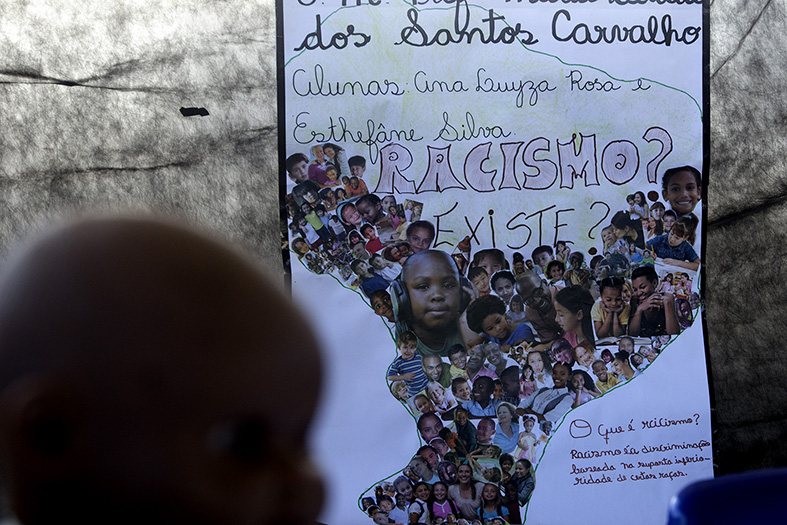 dos Santos Carvalho
Alunas: Ana Luyza Rosa e
Esthefâne Silva.
RACISMO?
EXISTE?
O que é racismo?
Racismo é a discriminação
baseada na suposta inferio-
ridade de certas raças.